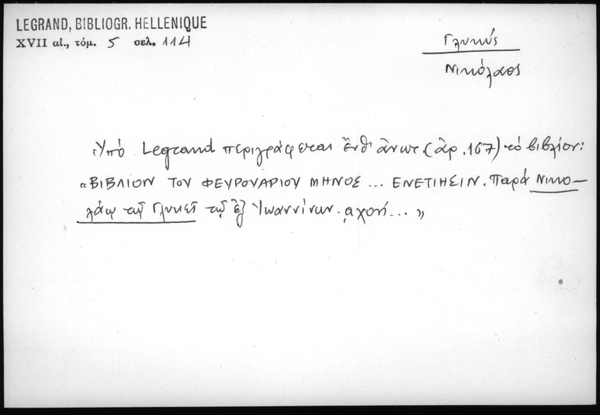 LEGRAND, BIBLIOGR. HELLENIQUE
XVII αἰ., τόμ. 5 σελ. 114
Γλυκύς
Νικόλαος
Ὑπό Legrand περιγράφεται ἔνθ' ἄνωτ (ἀρ. 167) τό βιβλίον:
«ΒΙΒΛΙΟΝ ΤΟΥ ΦΕΥΡΟΥΑΡΙΟΥ ΜΗΝΟΣ... ΕΝΕΤΙΗΣΙΝ. Παρά Νικο-
λάῳ τῷ Γλυκεῖ τῷ ἐξ Ἰωαννίνων. ͵αχοή... »